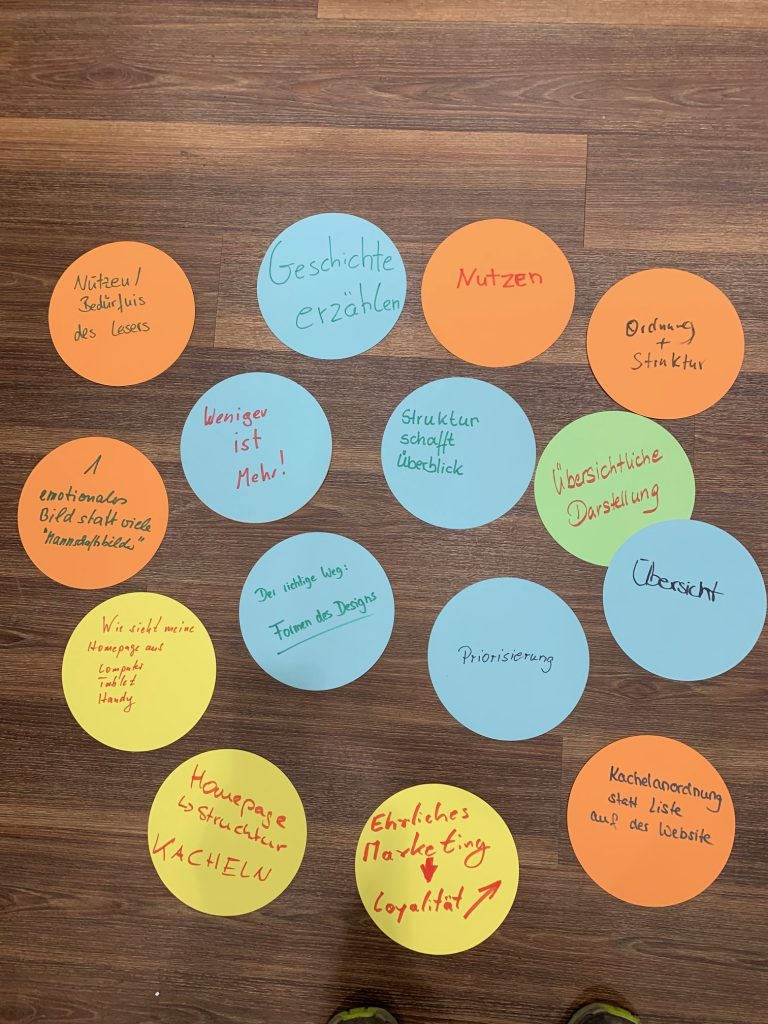 Nutzen/
Bedürfnis
des Lesers
Geschichte
erzählen
Nutzen
Ordnung
+
Struktur
Weniger
ist
Mehr!
Struktur
schafft
Überblick
Übersichtliche
Darstellung
1
emotionales
Bild statt viele
"Mannschaftsbilder"
Der richtige Weg:
Formen des Designs
Übersicht
Wie sieht meine
Homepage aus
Computer
Tablet
Handy
Priorisierung
Homepage
↳ Strucktur
KACHELN
Ehrliches
Marketing
↓
Loyalität ↗
Kachelanordnung
statt Liste
auf der Website